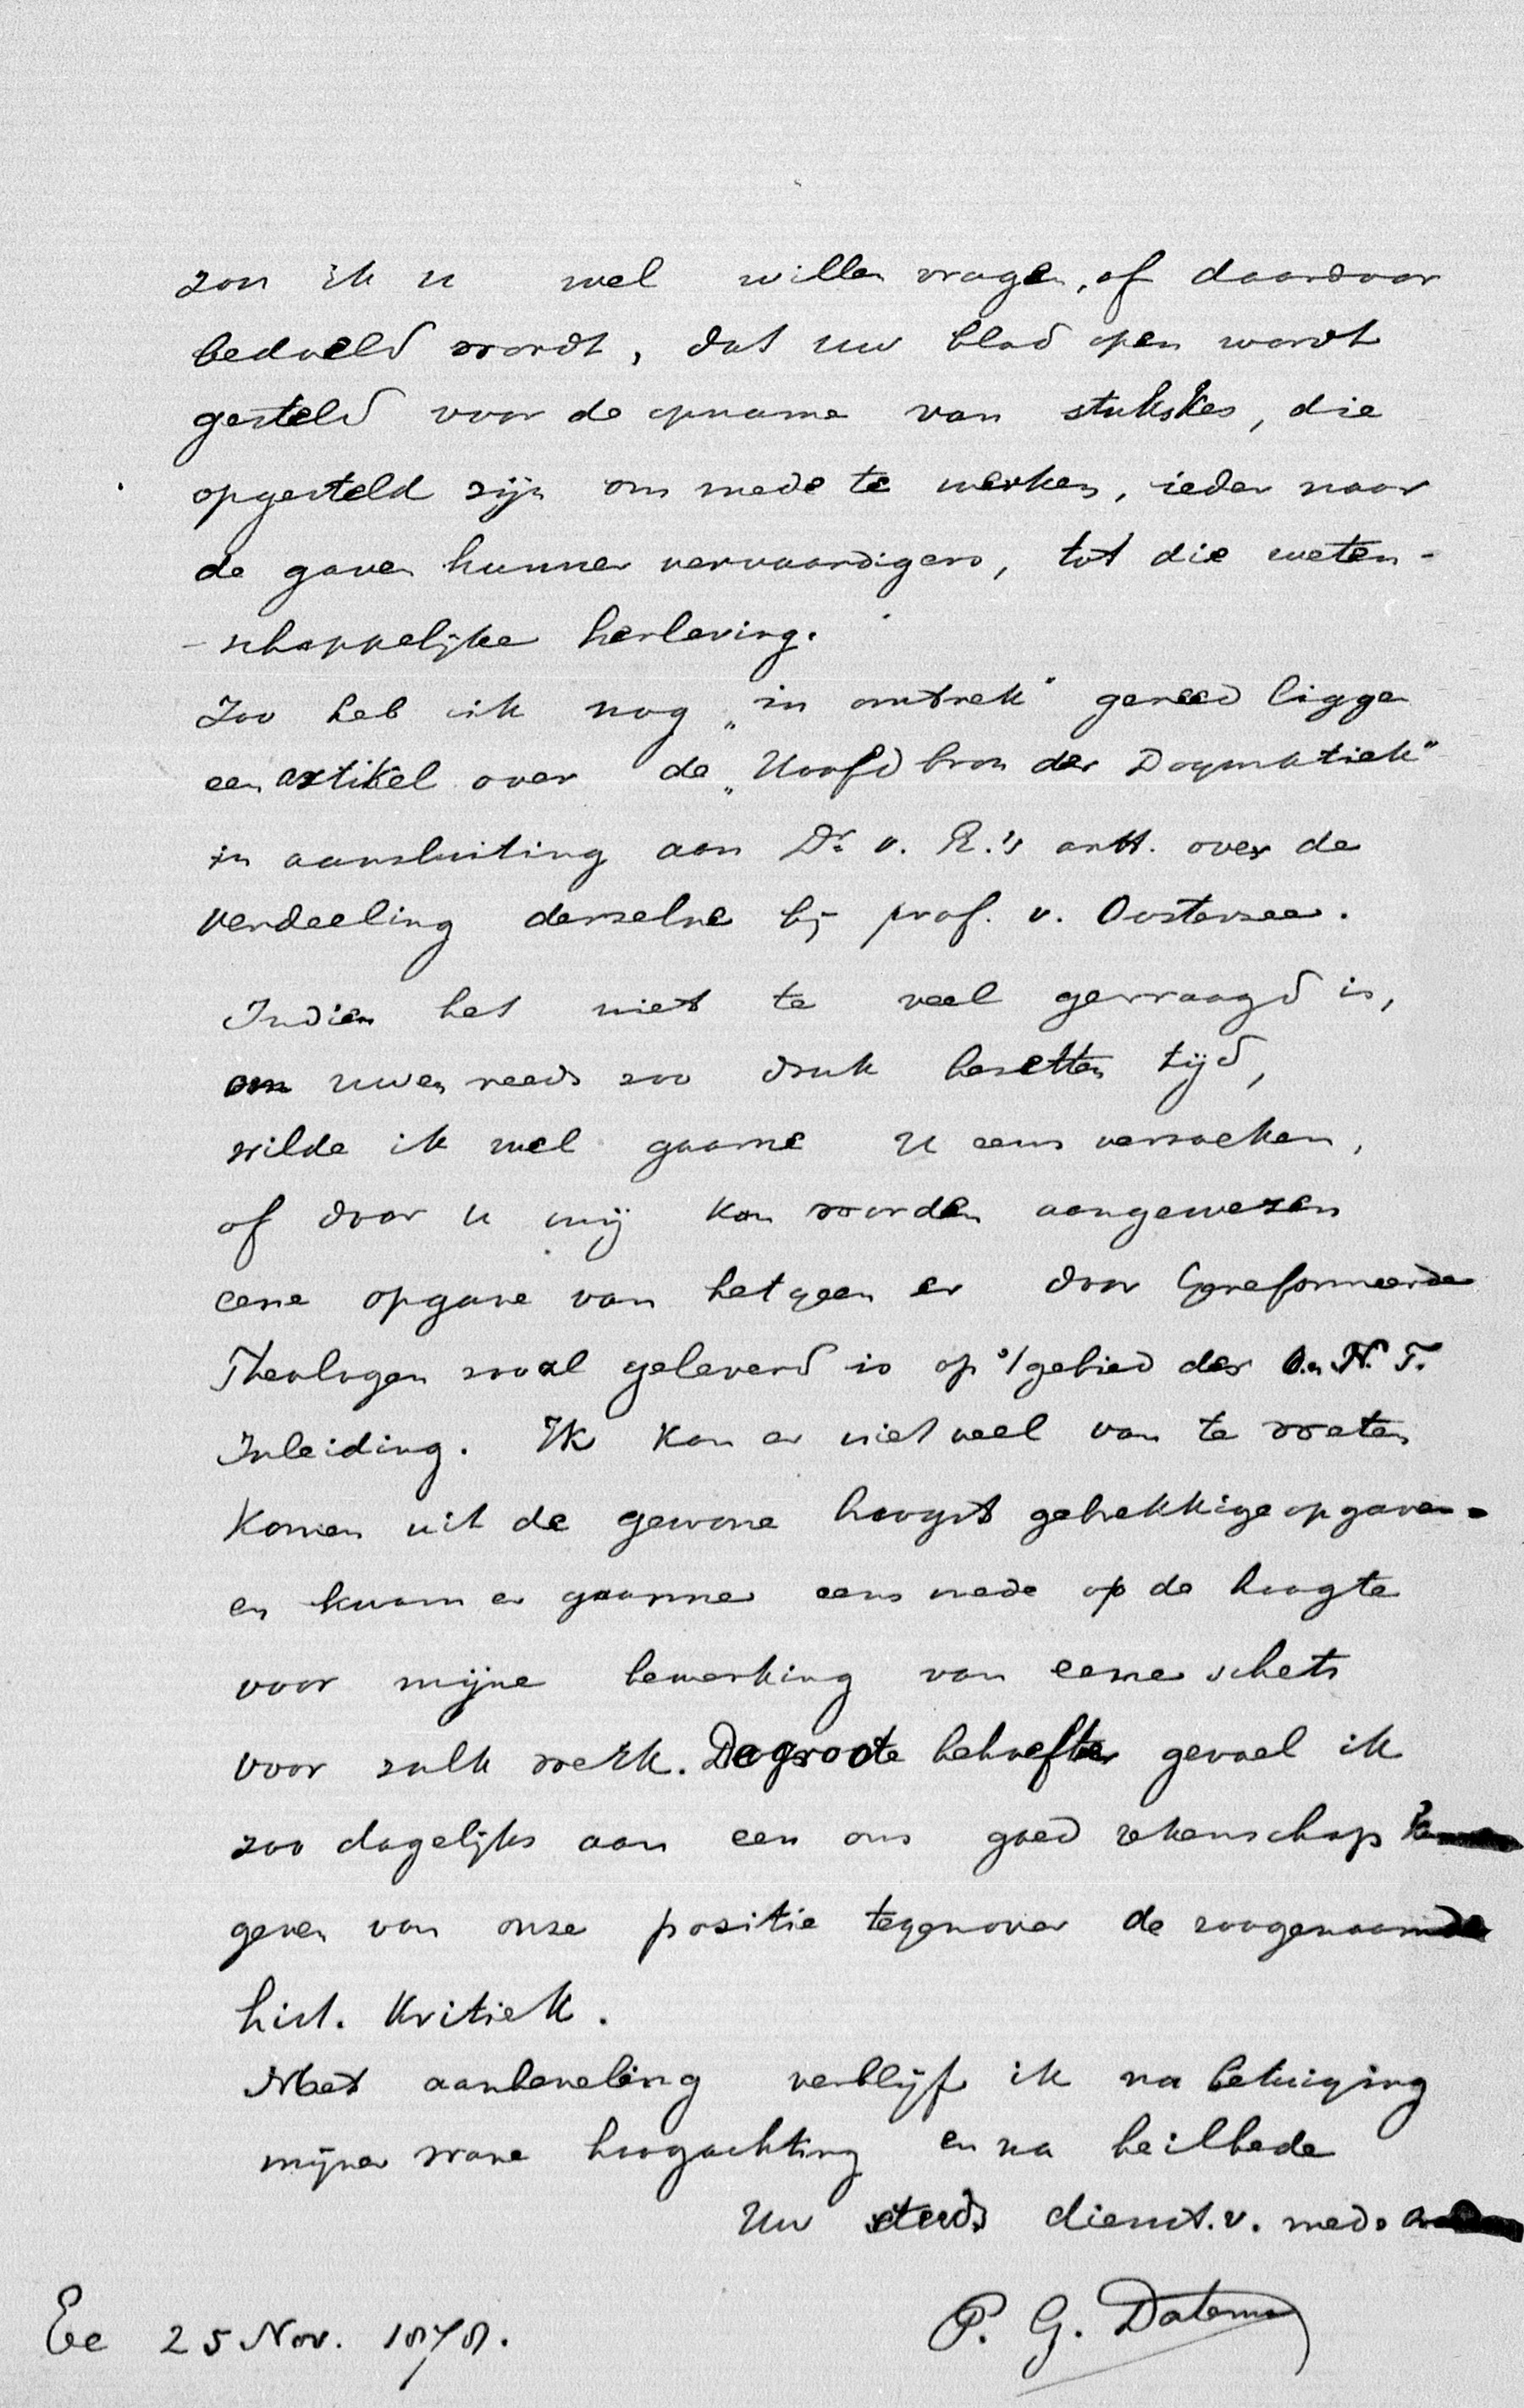 zou ik u wel willen vragen, of daardoor
bedoeld wordt, dat uw blad open wordt
gesteld voor de opname van stukskes, die
opgesteld zijn om mede te werken, ieder naar
de gaven hunner vervaardigers, tot die weten-
-schappelijke herleving.
Zoo heb ik nog „in omtrek" gereed liggen
een artikel over de „Hoofdbron der Dogmatiek"
in aansluiting aan Dr. v. R.'s artt. over de
verdeeling derzelve bij prof. v. Oosterzee.
Indien het niet te veel gevraagd is,
om uwen reeds zoo druk bezetten tijd,
wilde ik wel gaarne u eens verzoeken,
of door u mij kon worden aangewezen
eene opgave van hetgeen er door Gereformeerde
Theologen zooal geleverd is op 't gebied der O. en N. T.
Inleiding. Ik kon er niet veel van te weten
komen uit de gewone hoogst gebrekkige opgaven
en kwam er gaarne eens mede op de hoogte
voor mijne bewerking van eene schets
voor zulk werk. De groote behoefte gevoel ik
zoo dagelijks aan een ons goed rekenschap
geven van onze positie tegenover de zoogenaamde
hist. Kritiek.
Met aanbeveling verblijf ik na betuiging
mijner ware hoogachting en na heilbede
Uw steeds dienst.v. mede
P. G. Datema
Ee 25 Nov. 1878.